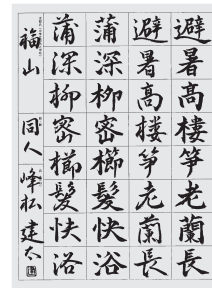 避暑高樓笋老蘭長
避暑高楼笋老蘭長
蒲深柳密櫛髪快浴
蒲深柳密櫛髪快浴
福山 同人 峰松建太